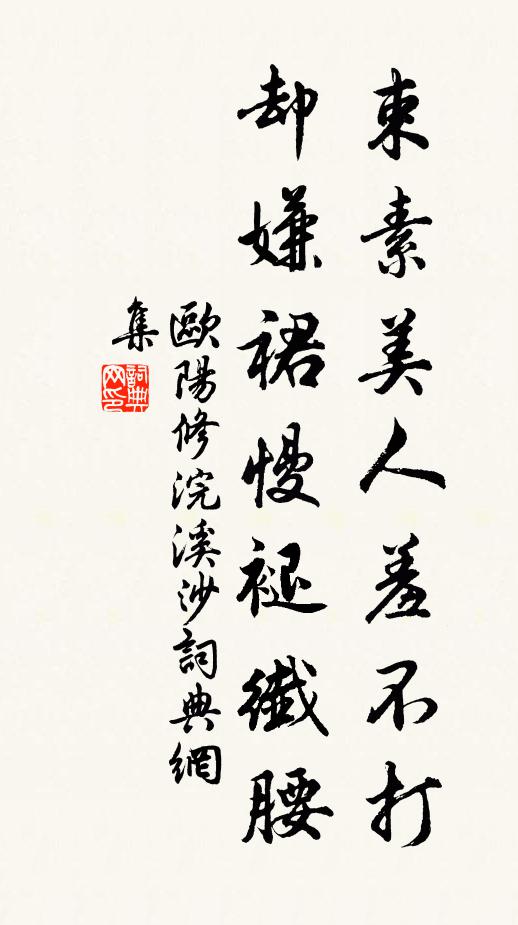 束素美人羞不打
却嫌裙慢褪纖腰
歐陽修浣溪沙詞典網
集
詞典
网印